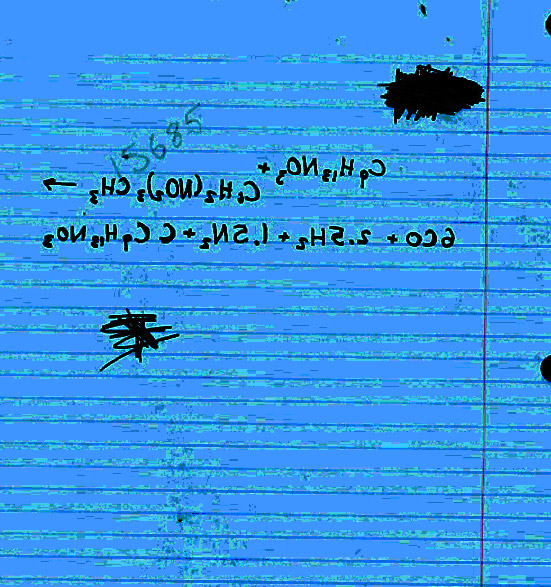 15685
C₉H₁₃NO₃ +
C₆H₂(NO₂)₃CH₃ →
6CO + 2.5H₂ + 1.5N₂ + C C₉H₁₃NO₃